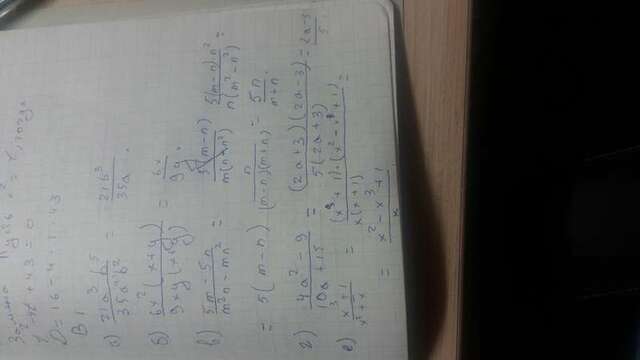 Замена Пусть x² = t, тогда
t² - 4t + 43 = 0
D = 16 - 4 · 1 · 43
В 1
а) 21a³b⁵ / 35a⁴b² = 21b³ / 35a.
б) 6x²(x+y) / 9xy(x+y) = 6x / 9y.
в) 5m - 5n / m²n - mn² = 5(m-n) / m(n+n²) 5(m-n)·n² / n(m²-n²) =
= 5(m-n) n / (m-n)(m+n) = 5n / m+n.
г) 4a² - 9 / 10a + 15 = (2a+3)(2a-3) / 5(2a+3) = 2a-3 / 5.
е) x³+1 / x²+x = (x³+1)·(x²-x³+1) / x(x+1) =
= x²-x³+1 / x